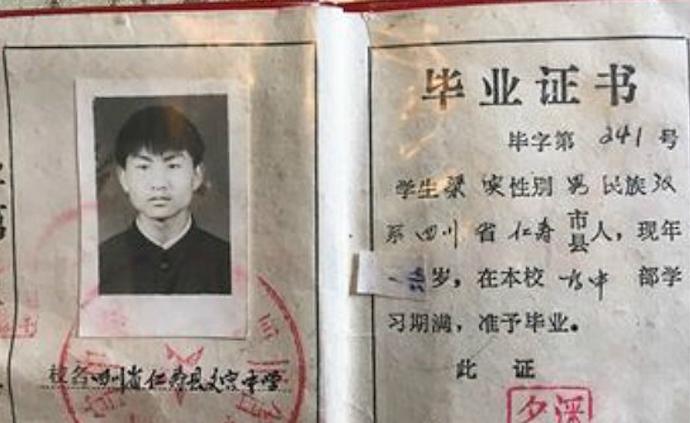 校名四川省仁寿县文宫中学
毕业证书
毕字第 241 号
学生梁 实性别 男 民族汉
系 四川 省 仁寿 市县人，现年
岁，在本校 高中 部学
习期满，准予毕业。
此 证